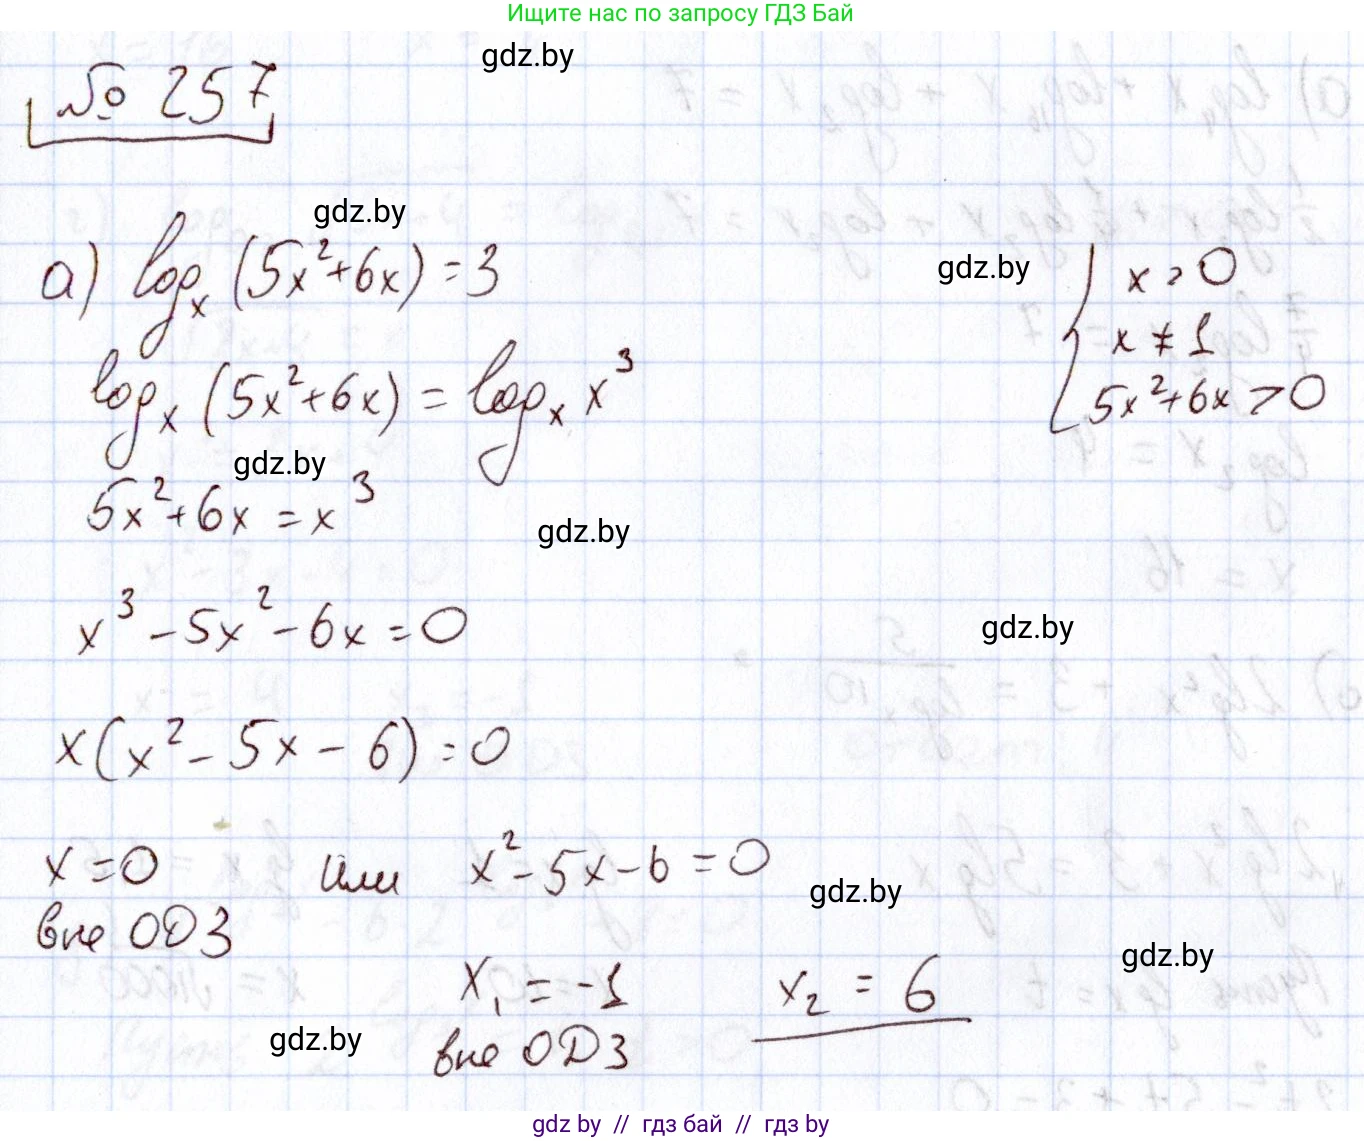 Ищите нас по запросу ГДЗ Бай
gdz.by
№ 257
gdz.by
а) log_x (5x²+6x) = 3
gdz.by
x > 0
x ≠ 1
5x²+6x > 0
log_x (5x²+6x) = log_x x³
gdz.by
5x²+6x = x³
gdz.by
x³ - 5x² - 6x = 0
gdz.by
x(x² - 5x - 6) = 0
x = 0 или x² - 5x - 6 = 0
gdz.by
вне ОДЗ
gdz.by
x₁ = -1 x₂ = 6
gdz.by
вне ОДЗ
gdz.by // гдз бай // гдз by